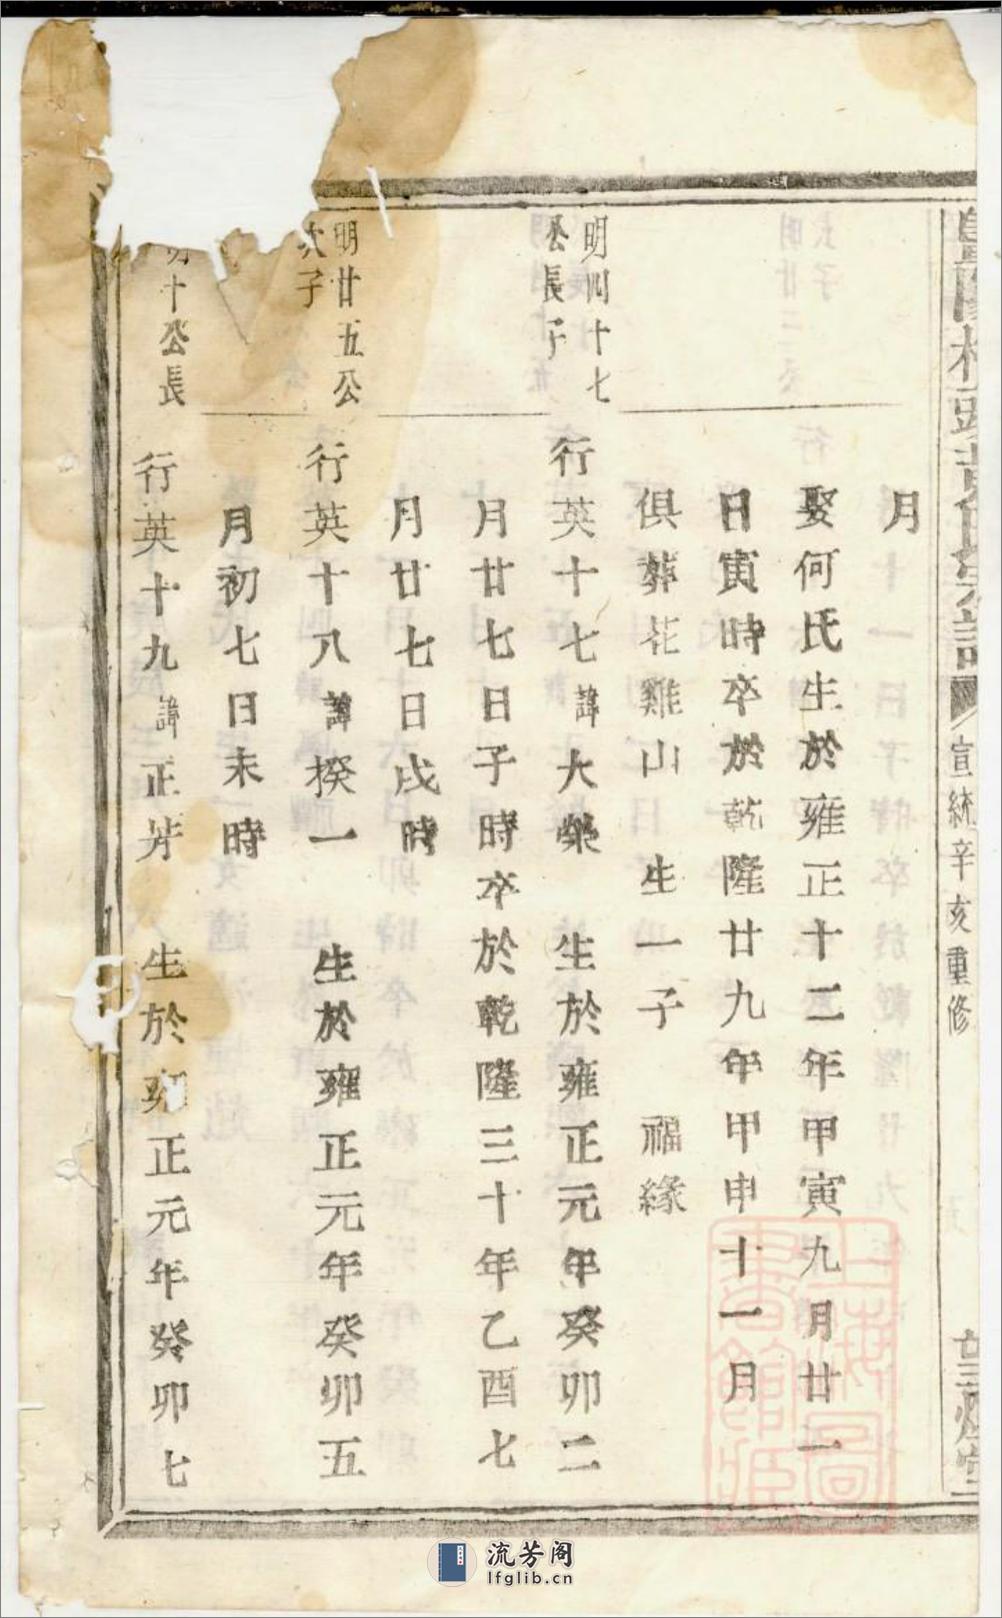 黃氏宗譜
宣統辛亥重修
月
娶何氏生於雍正十二年甲寅九月廿一
日寅時卒於乾隆廿九年甲申十一月
俱葬花雞山 生一子 福緣
明四十七
公長子
行英十七諱大榮 生於雍正元年癸卯二
月廿七日子時卒於乾隆三十年乙酉七
月廿七日戌時
明廿五公
次子
行英十八諱揆一 生於雍正元年癸卯五
月初七日未時
十公長
行英十九諱正芳 生於雍正元年癸卯七
流芳阁
lfglib.cn